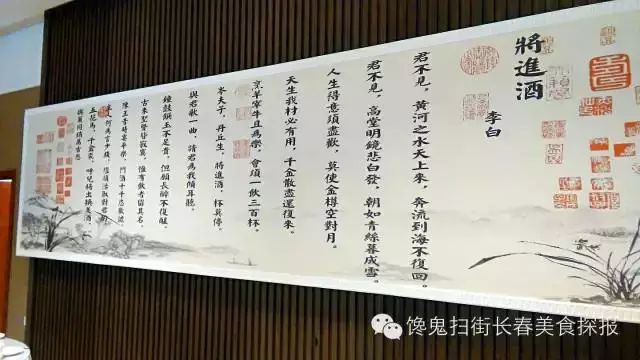 將進酒
李白
君不見，黃河之水天上來，奔流到海不復回。
君不見，高堂明鏡悲白發，朝如青絲暮成雪。
人生得意須盡歡，莫使金樽空對月。
天生我材必有用，千金散盡還復來。
烹羊宰牛且為樂，會須一飲三百杯。
岑夫子，丹丘生，將進酒，杯莫停。
與君歌一曲，請君為我傾耳聽。
鐘鼓饌玉不足貴，但願長醉不復醒。
古來聖賢皆寂寞，惟有飲者留其名。
陳王昔時宴平樂，斗酒十千恣歡謔。
主人何為言少錢，徑須沽取對君酌。
五花馬，千金裘，呼兒將出換美酒，
與爾同銷萬古愁
馋鬼扫街长春美食探报